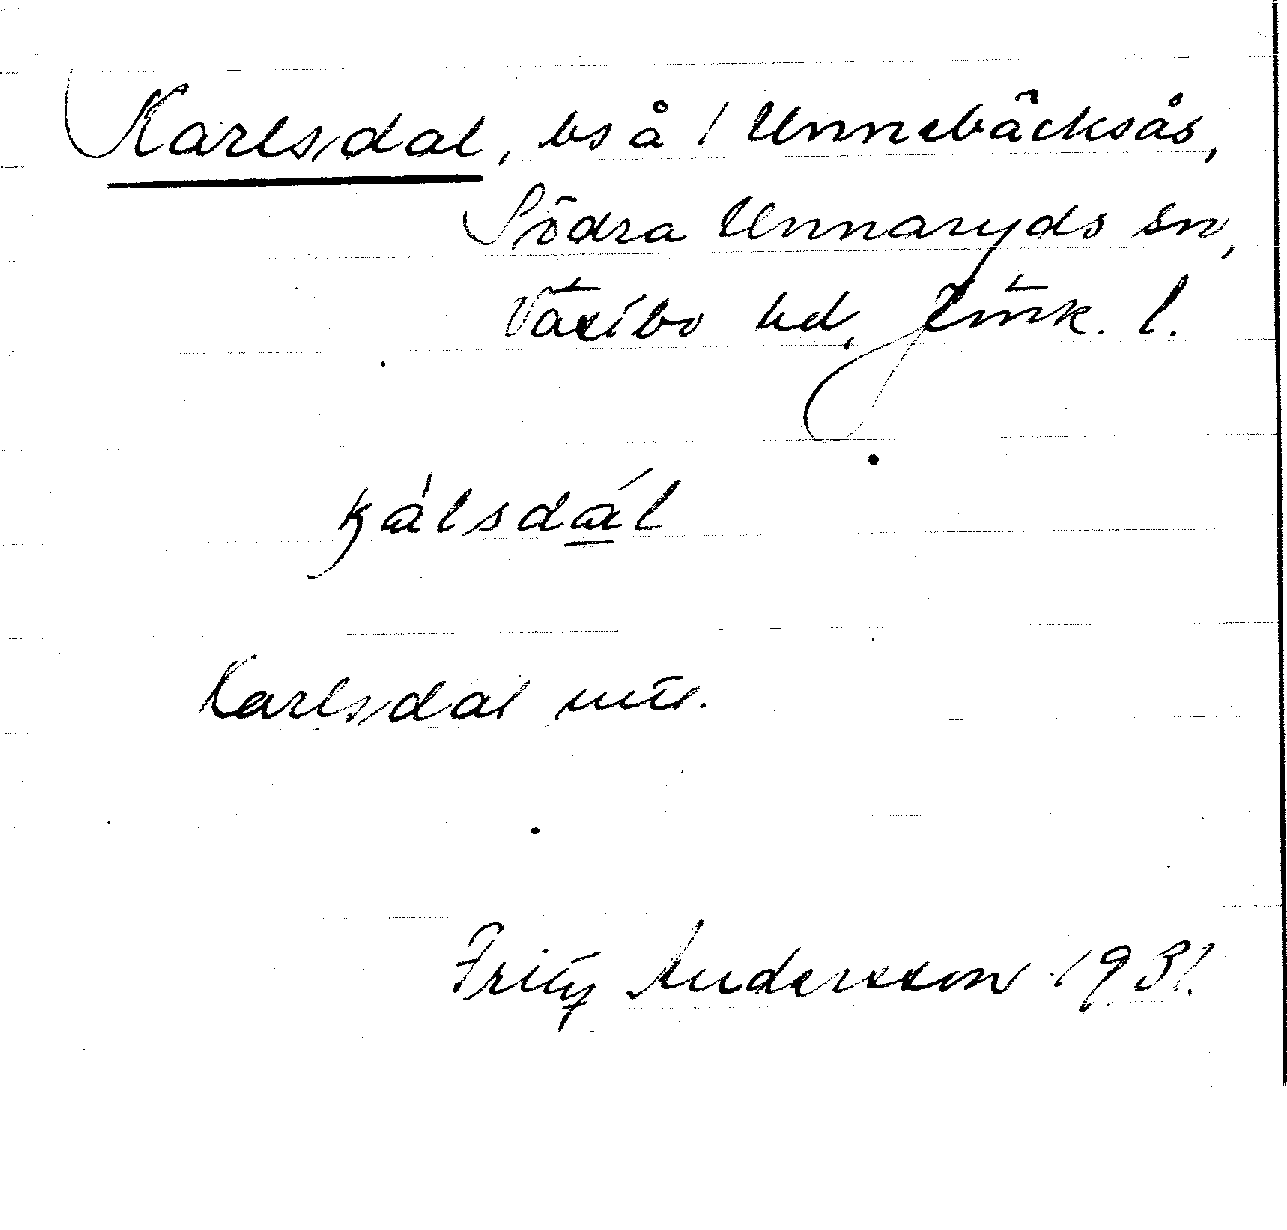 Karlsdal, bs å / Unnebäcksås,
Södra Unnaryds sn,
Västbo hd, Jönk. l.
kálsdál
Karlsdal
Fritz Andersson 1931.